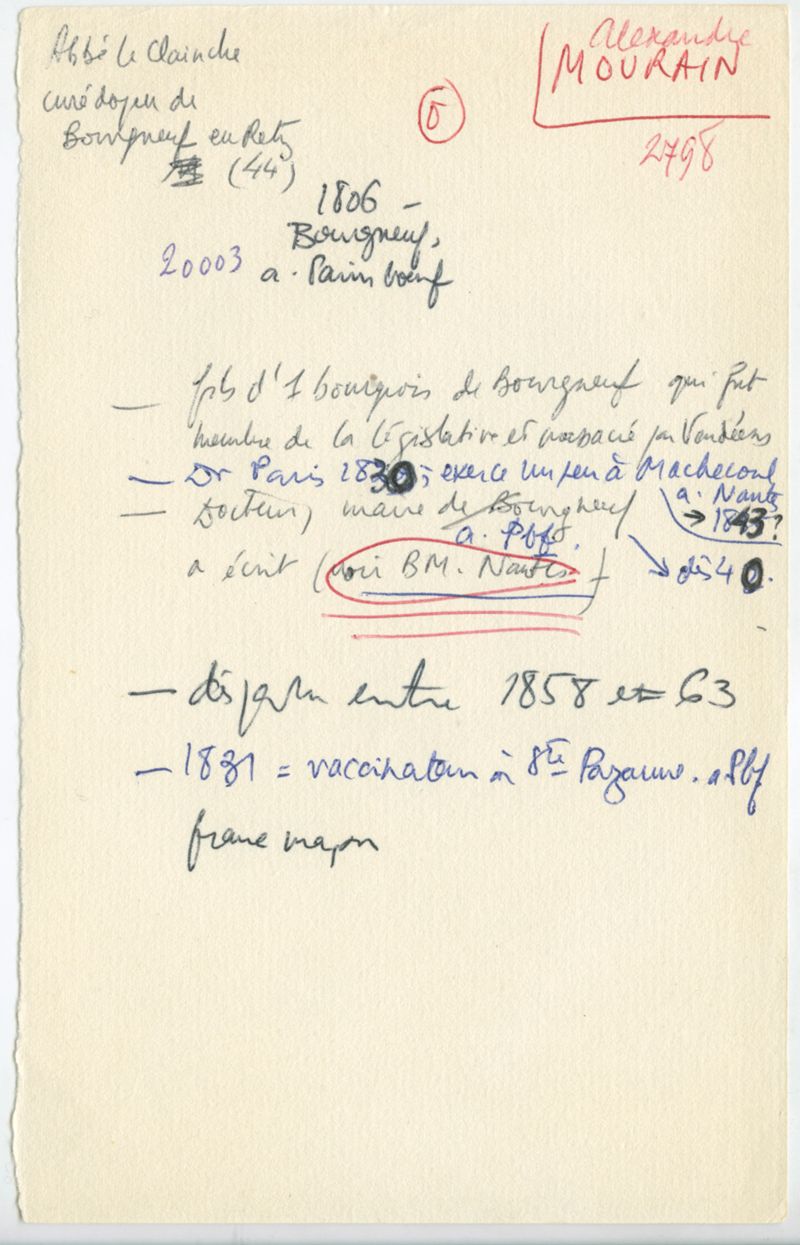 Abbé le Clainche
curé doyen de
Bourgneuf en Retz
(44)
Alexandre
MOURAIN
2798
1806 -
Bourgneuf,
20003 a. Paimboeuf
— fils d'1 bourgeois de Bourgneuf qui fut
membre de la législative et massacré par Vendéens
— Dr Paris 1830 ; exerce un peu à Machecoul
a. Nantes
→ 1843 ?
— Docteur, maire de Bourgneuf
a. Pbf.
→ dès 40.
a écrit (voir BM. Nantes)
— disparu entre 1858 et 63
— 1831 = vaccinateur à Ste Pazanne. a Pbf
franc maçon